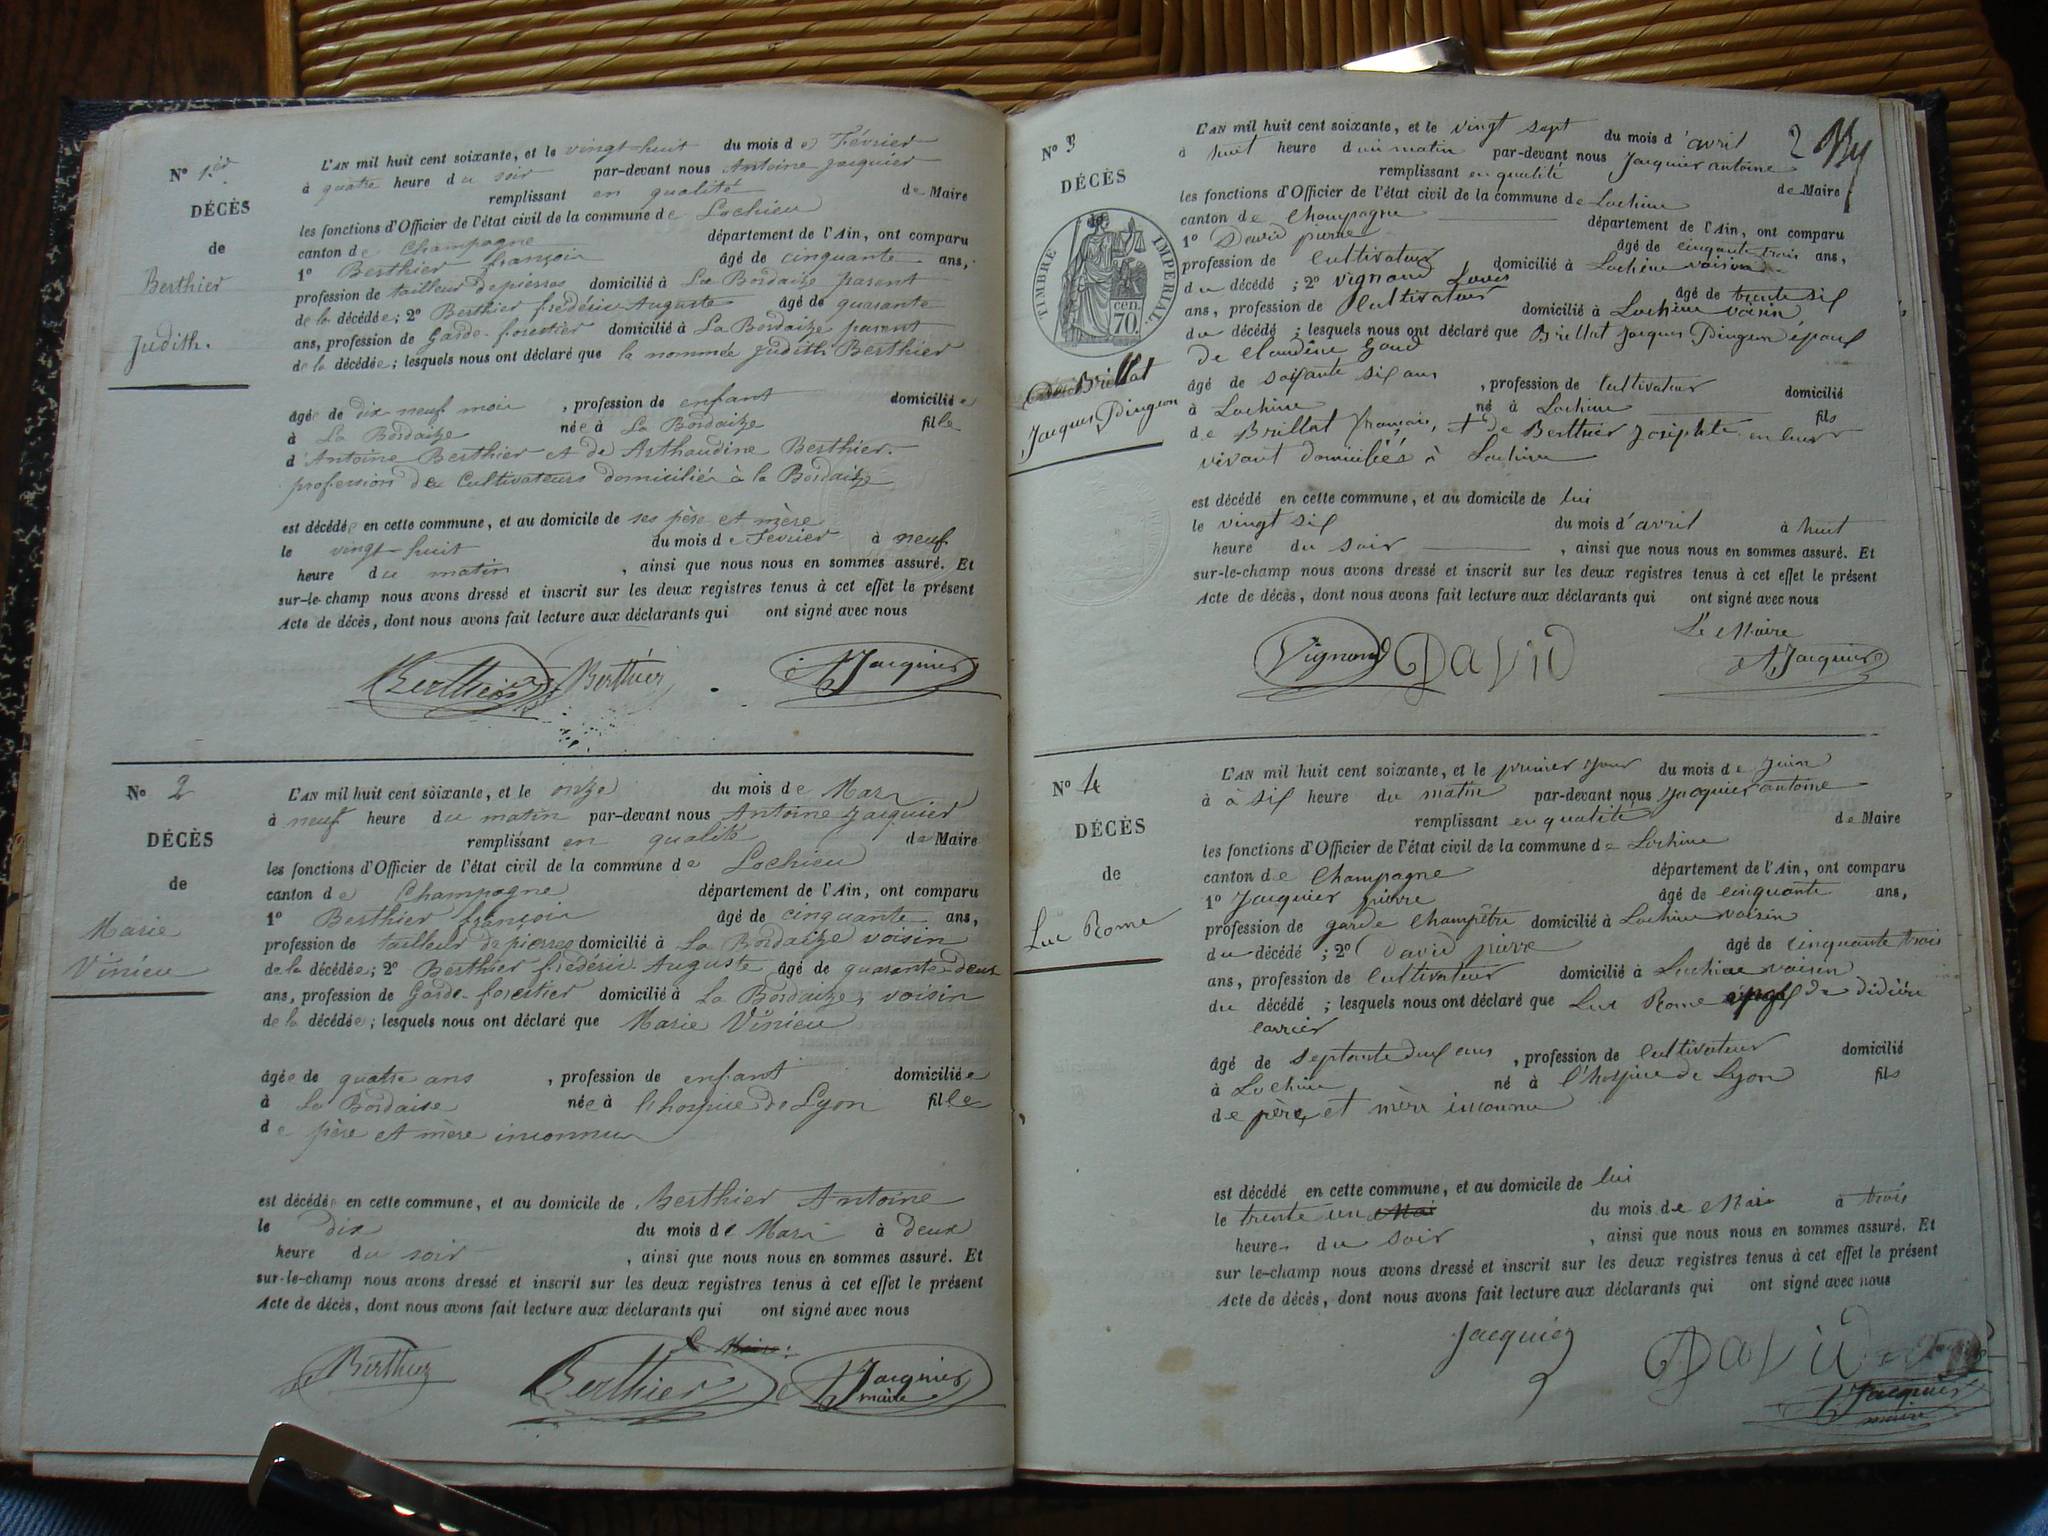 N° 1.er
DÉCÈS
de
Berthier
Judith.
L'AN mil huit cent soixante, et le vingt-huit du mois de Février
à quatre heure du soir par-devant nous Antoine Jacquier
remplissant en qualité de Maire
les fonctions d'Officier de l'état civil de la commune de Lochieu
canton de Champagne département de l'Ain, ont comparu
1° Berthier françois âgé de cinquante ans,
profession de tailleur de pierres domicilié à La Bordaize parent
de la décédée; 2° Berthier frédéric-Auguste âgé de quarante
ans, profession de Garde-forestier domicilié à La Bordaize parent
de la décédée; lesquels nous ont déclaré que la nommée Judith Berthier
âgée de dix neuf mois, profession de enfant domiciliée
à La Bordaize née à La Bordaize fille
d'Antoine Berthier et de Arthaudine Berthier.
profession de Cultivateurs domiciliés à la Bordaize
est décédée en cette commune, et au domicile de ses père et mère
le vingt-huit du mois de Fevrier à neuf
heure du matin, ainsi que nous nous en sommes assuré. Et
sur-le-champ nous avons dressé et inscrit sur les deux registres tenus à cet effet le présent
Acte de décès, dont nous avons fait lecture aux déclarants qui ont signé avec nous
Berthier Berthier AJacquier
N° 2
DÉCÈS
de
Marie
Vinieu
L'AN mil huit cent soixante, et le onze du mois de Mars
à neuf heure du matin par-devant nous Antoine Jacquier
remplissant en qualité de Maire
les fonctions d'Officier de l'état civil de la commune de Lochieu
canton de Champagne département de l'Ain, ont comparu
1° Berthier françois âgé de cinquante ans,
profession de tailleur de pierres domicilié à La Bordaize voisin
de la décédée; 2° Berthier frédéric Auguste âgé de quarante-deux
ans, profession de Garde-forestier domicilié à La Bordaize, voisin
de la décédée; lesquels nous ont déclaré que Marie Vinieu
âgée de quatre ans, profession de enfant domiciliée
à La Bordaise née à l'hospice de Lyon fille
de père et mère inconnus
est décédée en cette commune, et au domicile de Berthier Antoine
le dix du mois de Mars à deux
heure du soir, ainsi que nous nous en sommes assuré. Et
sur-le-champ nous avons dressé et inscrit sur les deux registres tenus à cet effet le présent
Acte de décès, dont nous avons fait lecture aux déclarants qui ont signé avec nous
Berthier Berthier AJacquier
maire
2
N° 3
DÉCÈS
de
TIMBRE IMPERIAL
70 cen.
Brillat
Jacques Pingeon
L'AN mil huit cent soixante, et le vingt sept du mois d'avril
à huit heure du matin par-devant nous Jacquier antoine
remplissant en qualité de Maire
les fonctions d'Officier de l'état civil de la commune de Lochieu
canton de Champagne département de l'Ain, ont comparu
1° David pierre âgé de cinquante trois ans,
profession de Cultivateur domicilié à Lochieu voisin
du décédé; 2° Vignand Louis âgé de trente six
ans, profession de Cultivateur domicilié à Lochieu voisin
du décédé; lesquels nous ont déclaré que Brillat Jacques Pingeon époux
de Claudine
âgé de soixante six ans, profession de Cultivateur domicilié
à Lochieu né à Lochieu fils
de Brillat françois, et de Berthier Josephte en leur
vivant domiciliés à Lochieu
est décédé en cette commune, et au domicile de lui
le vingt six du mois d'avril à huit
heure du soir, ainsi que nous nous en sommes assuré. Et
sur-le-champ nous avons dressé et inscrit sur les deux registres tenus à cet effet le présent
Acte de décès, dont nous avons fait lecture aux déclarants qui ont signé avec nous
Le Maire
Vignand DaviD AJacquier
N° 4
DÉCÈS
de
Luc Rome
L'AN mil huit cent soixante, et le premier jour du mois de juin
à à six heure du matin par-devant nous Jacquier antoine
remplissant en qualité de Maire
les fonctions d'Officier de l'état civil de la commune de Lochieu
canton de Champagne département de l'Ain, ont comparu
1° Jacquier pierre âgé de cinquante ans,
profession de garde Champêtre domicilié à Lochieu voisin
du décédé; 2° David pierre âgé de cinquante trois
ans, profession de Cultivateur domicilié à Lochieu voisin
du décédé; lesquels nous ont déclaré que Luc Rome époux de didière
carrier
âgé de septante deux ans, profession de Cultivateur domicilié
à Lochieu né à l'hospice de Lyon fils
de père et mère inconnu
est décédé en cette commune, et au domicile de lui
le trente un du mois de Mai à trois
heures du soir, ainsi que nous nous en sommes assuré. Et
sur le-champ nous avons dressé et inscrit sur les deux registres tenus à cet effet le présent
Acte de décès, dont nous avons fait lecture aux déclarants qui ont signé avec nous
Jacquier DaviD
AJacquier
maire